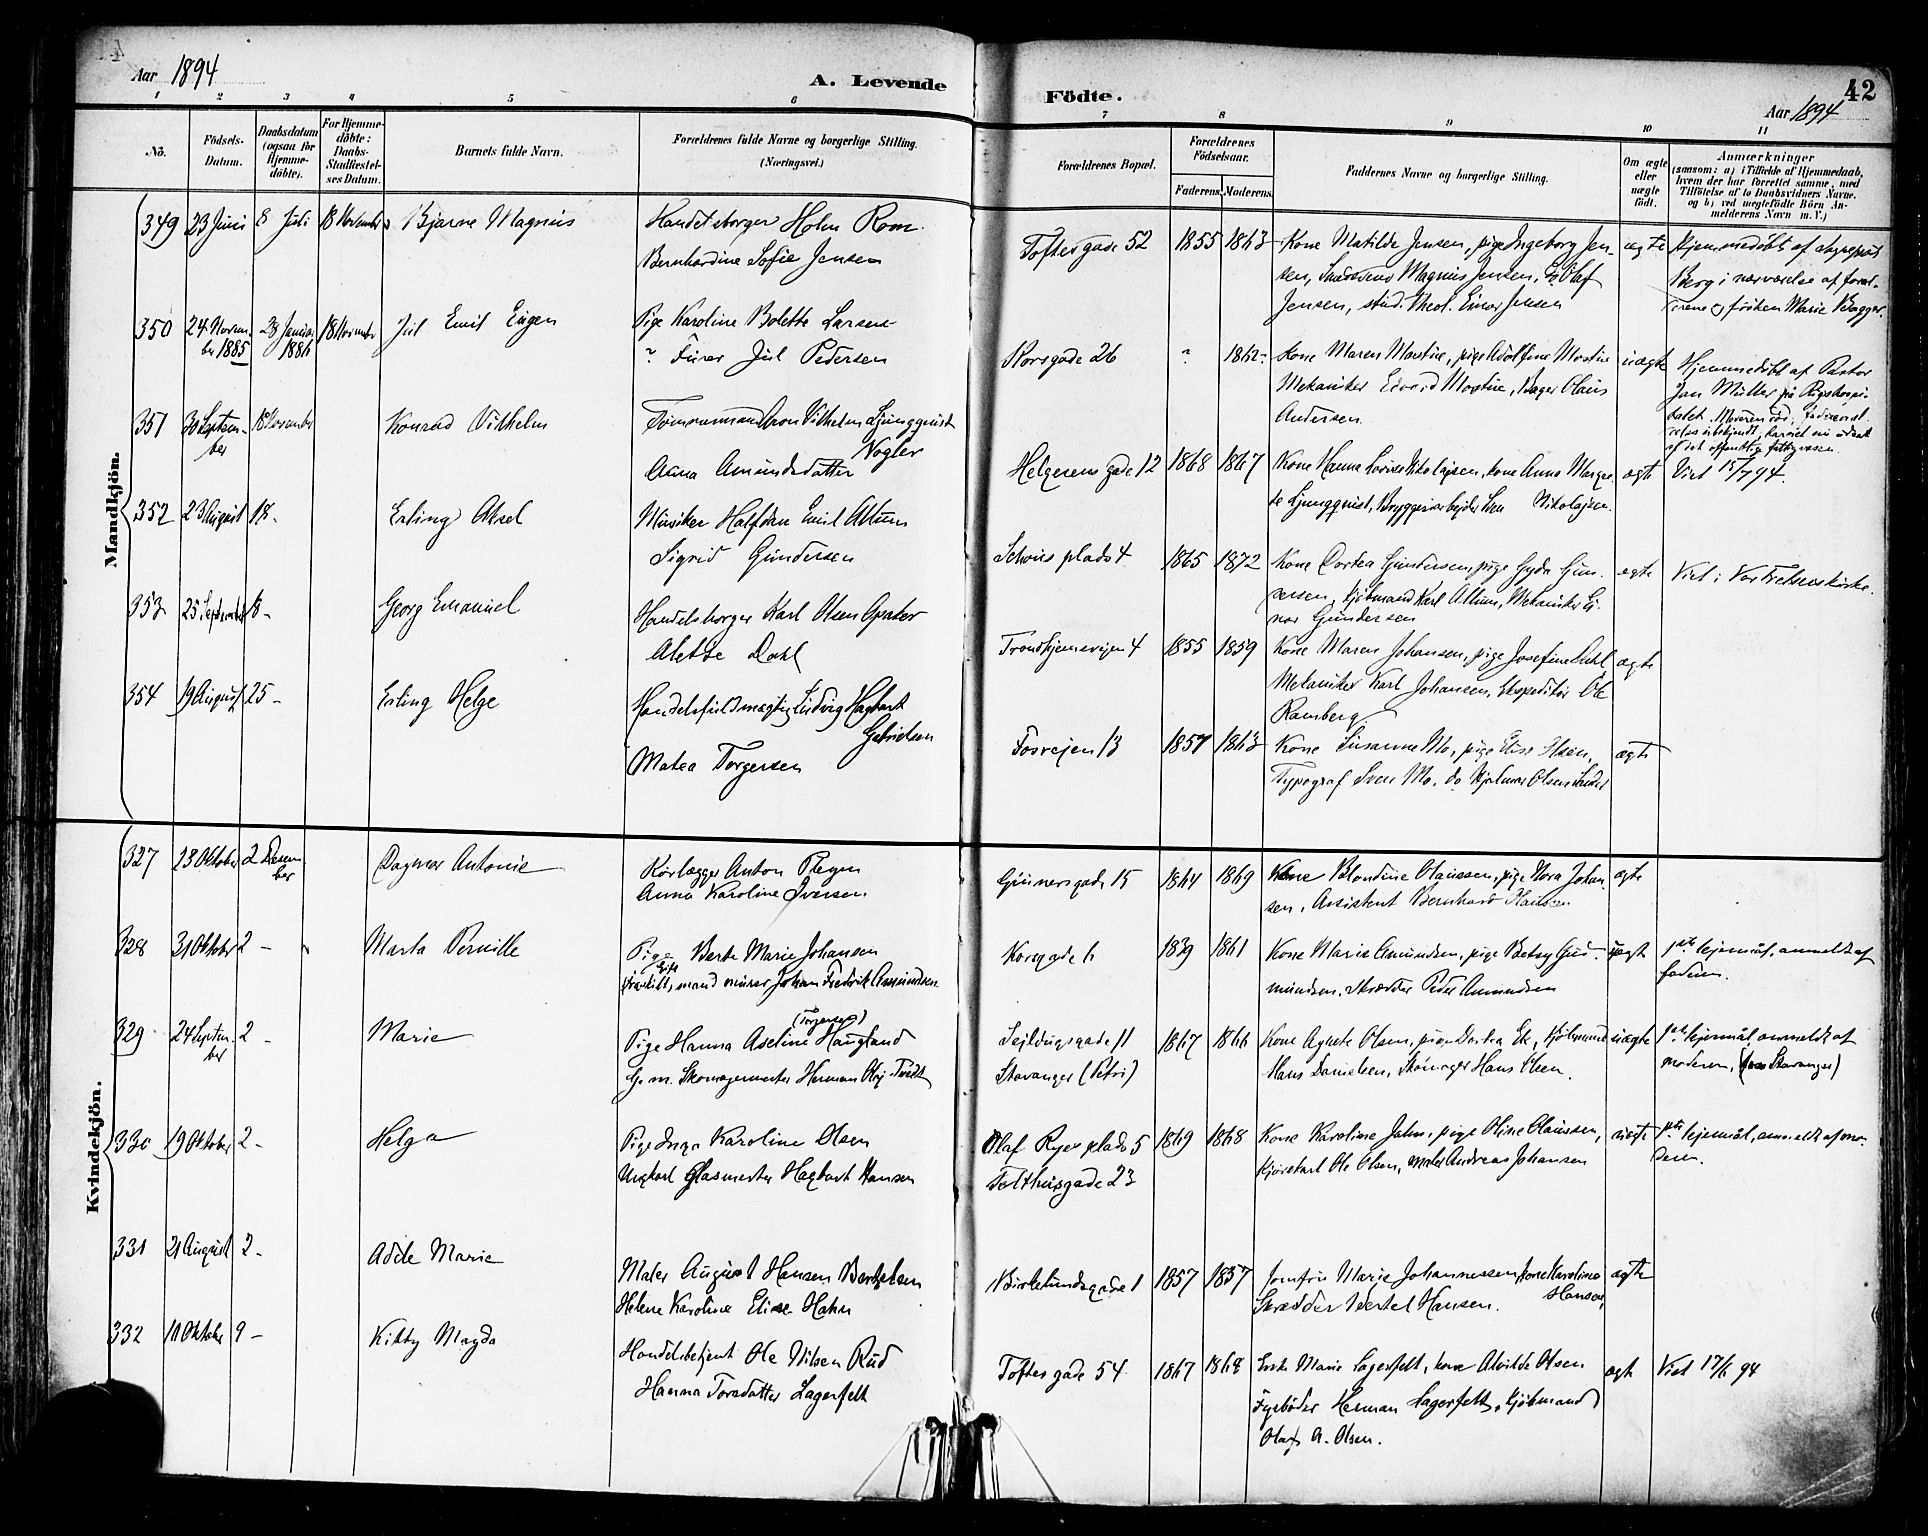 Aar 1894
A. Levende Födte.
42
Aar 1894
1 2 3 4 5 6 7 8 9 10 11
No.
Födsels-Datum.
Daabsdatum (ogsaa for Hjemme-döbte).
For Hjemme-döbte: Daabs-Stadfæstel-ses Datum.
Barnets fulde Navn.
Forældrenes fulde Navne og borgerlige Stilling. (Næringsvei.)
Forældrenes Bopæl.
Forældrenes Födselsaar.
Faderens. Moderens.
Faddernes Navne og borgerlige Stilling.
Om ægte eller uægte födt.
Anmærkninger
(saasom: a) i Tilfælde af Hjemmedaab, hvem der har forrettet samme, med Tilföielse af to Daabsvidners Navne. og b) ved uægtefödte Börn Anmelderens Navn m. V.)
Mandkjön.
349 23 Juni 8 Juli 18 November Bjarne Magnus
Handelsborger Holm Rom
Bernhardine Sofie Jensen
Toftesgade 52 1855 1863
Kone Matilde Jensen, pige Ingeborg Jen-
sen, Magnus Jensen, Olaf
Jensen, stud. theol. Einar Jensen
ægte
Hjemmedöbt af
Berg i nærværelse af foræl-
drene og fröken Marie Bagger.
350 24 Novem-
ber 1885 23 Januar
1886 18 November Jul Emil Eugen
Pige Karoline Bolette Larsen
? Jul Pedersen
Korsgade 26 ? 1862
Kone Maren Mostue, pige Adolfine Mostue
Mekaniker Edvard Mostue, Bager Olaus
Andersen
uægte
Hjemmedöbt af Pastor
Jan Müller på Rigshospi-
talet. Moderen död,
af det offentlige fattigvæsen.
351 30 Septem-
ber 18 November Konrad Vilhelm
Tömmermand Aron Vilhelm Ljungqvist
Nogler
Anna Amundsdatter
Helgesens gade 12 1868 1867
Kone Hanna Lovise Nikolajsen, kone Anna Margre-
te Ljungqvist, Bryggeriarbejder Nikolajsen.
ægte
Viet 15/7 94.
352 23 August 18 - Erling Aksel
Musiker Halfdan Emil Altum
Sigrid Gundersen
Schous plads 4 1865 1872
Kone Dortea Gundersen, pige Gyda Gun-
dersen, Kjöbmand Karl Altum, Mekaniker Ej-
nar Gundersen
ægte
Viet i Vor Frelsers kirke.
353 25 September 18 - Georg Emanuel
Handelsborger Karl Olsen
Alette Dahl
Trondhjemsvejen 4 1855 1859
Kone Maren Johansen, pige Josefine Dahl
Mekaniker Karl Johansen, Ekspeditör Ole
Ramberg
ægte
354 19 August 25 - Erling Helge
Handelsfuldmægtig Ludvig Hagbart
Gabrielsen
Matea Torgersen
Fosvejen 13 1857 1863
Kone Susanne Mo, pige Elise Olsen,
Typograf Sven Mo, do Hjalmar Olsen
ægte
Kvindekjön.
327 23 Oktober 2 Desem-
ber Dagmar Antonie
Rörlægger Anton
Anna Karoline Iversen
Grünersgade 15 1864 1869
Kone Blondine Olaussen, pige Nora Johan-
sen, Assistent Bernhard
ægte
328 31 Oktober 2 - Marta Pernille
Pige Berte Marie Johansen
Fraskilt, mand murer Johan Fredrik Amundsen
Korsgade 6 1839 1861
Kone Marie Amundsen, pige Betsy Gud-
mundsen, Skrædder Peder Amundsen
uægte
1ste lejemål, anmeldt af
faderen.
329 24 Septem-
ber 2 - Marie
(Torgersen)
Pige Hanna Aseline Haugland
G. m. Skomagermester Herman
Sejldugsgade 11
Stavanger (Petri) 1867 1866
Kone Agnete Olsen, pige Dortea Ek, Kjöbmand
Hans Danielsen, Skomager Hans Olsen.
uægte
1ste lejemål, anmeldt af
moderen, (Stavanger)
330 19 Oktober 2 - Helga
Pige Inga Karoline Olsen
Ungkarl Glasmester Hagbart Hansen
Olaf Ryes plads 5
Tolthusgade 23 1869 1868
Kone Karoline Jahn, pige Oline Olaussen,
Kjörekarl Ole Olsen, maler Andreas Johansen
uægte
1ste lejemål, anmeldt af mo-
deren.
331 21 August 2 - Adele Marie
Maler August Hansen
Helene Karoline Elise Hahn
Birkelundsgade 1 1857 1857
Jomfru Marie Johannessen, kone Karoline
Hansen,
Skrædder Bertel Hansen.
ægte
332 11 Oktober 9 - Kitty Magda
Handelsbetjent Ole Nilsen Rud
Hanna Torsdatter Lagerfelt
Toftesgade 54 1867 1868
Enke Marie Lagerfelt, kone Alvilde Olsen
Fyrböder Herman Lagerfelt, Kjöbmand
Olaf A. Olsen.
ægte
Viet 17/6 94